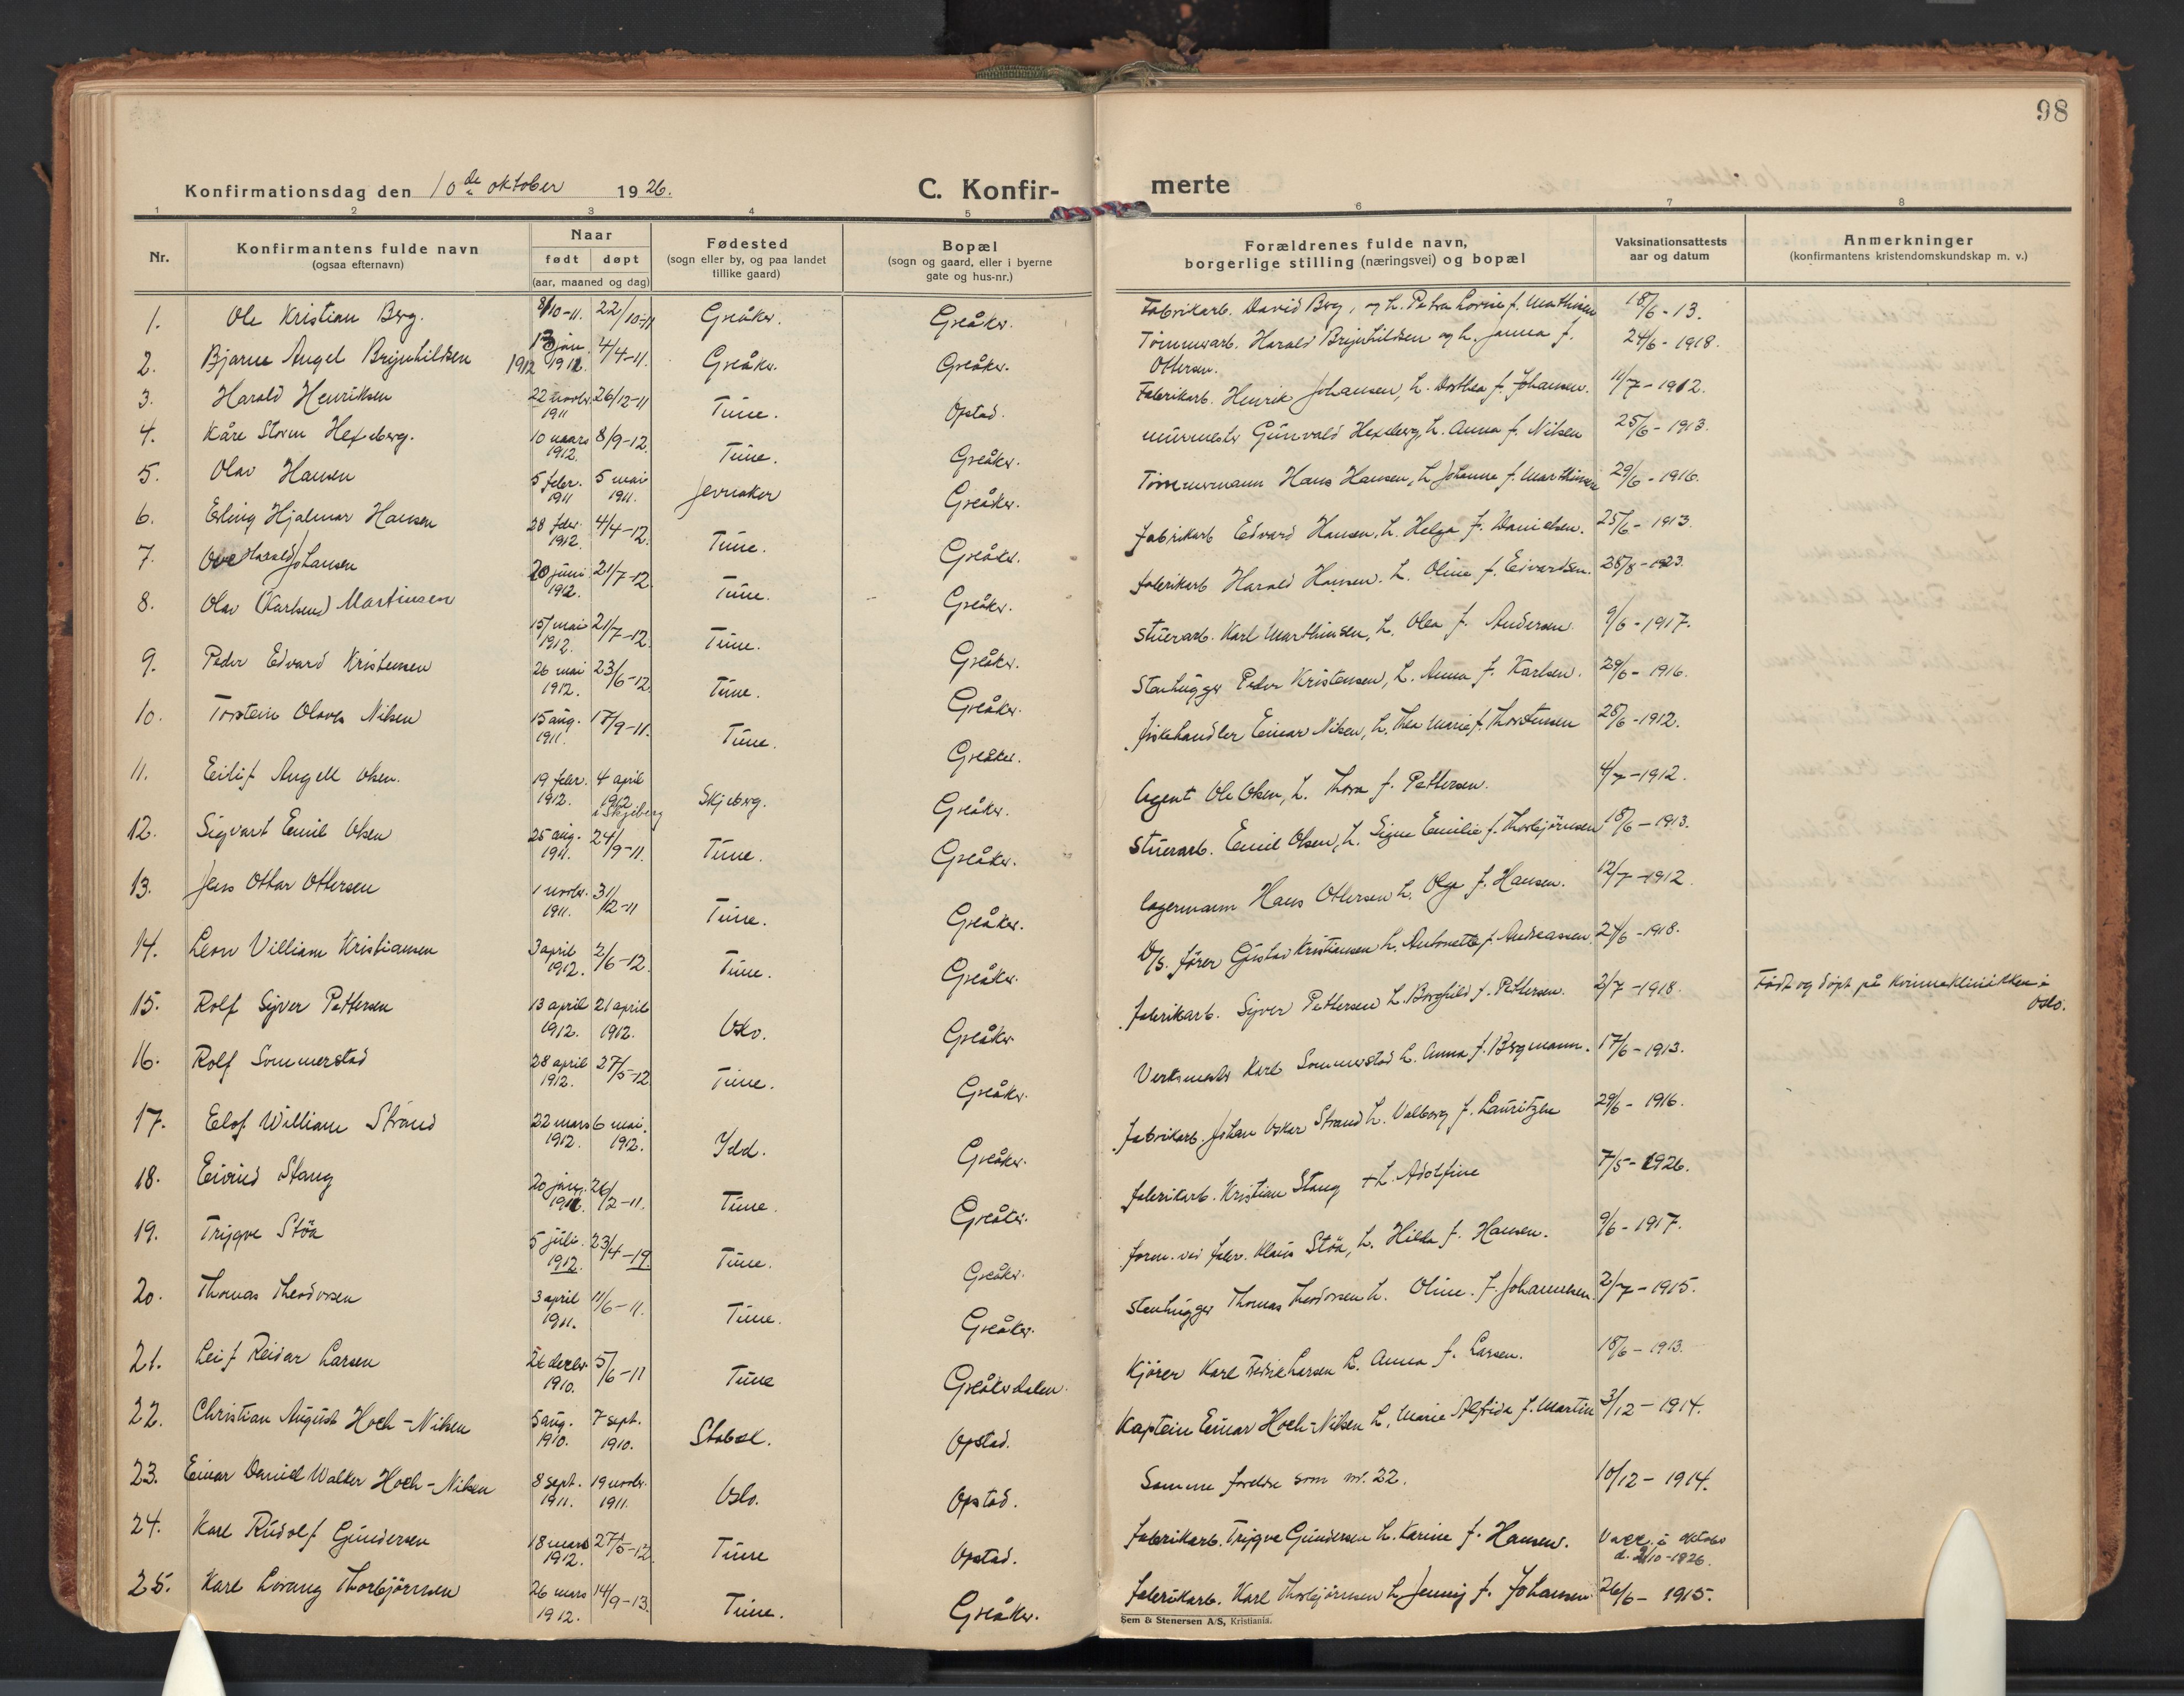 98
Konfirmationsdag den 10de oktober 1926.
C. Konfir-
merte
1 2 3 4 5 6 7 8
Nr.
Konfirmantens fulde navn
(ogsaa efternavn)
Naar
født døpt
(aar, maaned og dag)
Fødested
(sogn eller by, og paa landet
tillike gaard)
Bopæl
(sogn og gaard, eller i byerne
gate og hus-nr.)
Forældrenes fulde navn,
borgerlige stilling (næringsvei) og bopæl
Vaksinationsattests
aar og datum
Anmerkninger
(konfirmantens kristendomskundskap m. v.)
1. Ole Kristian Berg. 8/10-11. 22/10-11 Greåker. Greåker. Fabrikarb. David Berg, og h. Petra Lovise f. Mathisen 18/6-13.
2. Bjarne Angel Brynhildsen 13 jan. 1912 4/4-11. Greåker. Greåker. Tømmerarb. Harald Brynhildsen og h. Janna f. 24/6-1918.
Ottersen.
3. Harald Henriksen 22 novbr. 1911 26/12-11 Tune. Opstad. Fabrikarb. Henrik Johansen, h. Dorthea f. Johansen. 11/7-1912.
4. Kåre Storm Hexeberg. 10 mars 1912. 8/9-12. Tune. Greåker. murmester Gunvald Hexeberg, h. Anna f. Nilsen 25/6-1913.
5. Olav Hansen 5 febr. 1911 5 mai 1911. Jevnaker Greåker. Tømmermann Hans Hansen, h. Johanne f. Marthinsen 29/6-1916.
6. Erling Hjalmar Hansen 28 febr. 1912. 4/4-12. Tune. Greåker. fabrikarb Edvard Hansen, h. Helga f. Danielsen. 25/6-1913.
7. Ove Harald Johansen 20 juni 1912. 21/7-12. Tune. Greåker. fabrikarb Harald Hansen. h. Oline f. Eivardsen. 28/8-1923.
8. Olav (Karlsen) Martinsen 15 mai 1912. 21/7-12. Tune. Greåker. Stuerarb. Karl Marthinsen, h. Olea f. Andersen. 9/6-1917.
9. Peder Edvard Kristensen 26 mai 1912. 23/6-12. Tune. Greåker. Stenhugger Peder Kristensen, h. Anna f. Karlsen. 29/6-1916.
10. Torstein Olaves Nilsen 15 aug. 1911. 17/9-11. Tune. Greåker. fiskehandler Einar Nilsen, h. Thea Marie f. Thorstensen 28/6-1912.
11. Eilif Angell Olsen. 19 febr. 1912. 4 april 1912 i Skjeberg Skjeberg. Greåker. Agent Ole Olsen, h. Thora f. Pettersen. 4/7-1912.
12. Sigvart Emil Olsen 25 aug. 1911. 24/9-11. Tune. Greåker. Stuerarb. Emil Olsen, h. Signe Emilie f. Thorbjørnsen 18/6-1913.
13. Jens Ottar Ottersen 1 novbr. 1911. 31/12-11 Tune. Greåker. lagermann Hans Ottersen h. Olga f. Hansen. 12/7-1912.
14. Leon Villiam Kristiansen 3 april 1912. 2/6-12. Tune. Greåker. D/S. fører Gustav Kristiansen h. Antonette f. Andreassen 24/6-1918.
15. Rolf Syver Pettersen 13 april 1912. 21 april 1912. Oslo. Greåker fabrikarb. Syver Pettersen h. Borghild f. Pettersen. 2/7-1918. Født og døpt på Kvinneklinikken i
Oslo.
16. Rolf Sommerstad 28 april 1912. 27/5-12 Tune. Greåker. Verksmester Karl Sommerstad h. Anna f. Bergmann. 17/6-1913.
17. Elof William Strand 22 mars 1912. 6 mai 1912. Idd. Greåker. fabrikarb. Johan Oskar Strand h. Valborg f. Lauritzen 29/6-1916.
18. Eivind Stang 20 jan. 1911. 26/2-11. Tune. Greåker. fabrikarb. Kristian Stang + h. Adolfine 7/5-1926.
19. Trygve Støa 5 juli 1912. 23/4-19. Tune. Greåker. form. ved fabr. Klaus Støa, h. Hilda f. Hansen. 9/6-1917.
20. Thomas Theodorsen 3 april 1911. 11/6-11. Tune. Greåker. Stenhugger Thomas Theodorsen h. Oline. f. Johannesen. 2/7-1915.
21. Leif Reidar Larsen 26 decbr. 1910. 5/6-11 Tune Greåkerdalen. Kjører Karl Fredrik Larsen h. Anna f. Larsen. 18/6-1913.
22. Christian August Hoch-Nilsen 5 aug. 1910. 7 sept. 1910. Stabæk. Opstad. Kaptein Einar Hoch-Nilsen h. Marie Alfrida f. Martin 3/12-1914.
23. Einar Daniel Walker Hoch-Nilsen 8 sept. 1911. 19 novbr. 1911. Oslo. Opstad. Samme foreldre som nr. 22. 10/12-1914.
24. Karl Rudolf Gundersen 18 mars 1912. 27/5-12. Tune Opstad. fabrikarb. Trygve Gundersen h. Karine f. Hansen. Vacc. i oktober
d. 2/10-1926.
25. Karl Lorang Thorbjørnsen 26 mars 1912. 14/9-13. Tune. Greåker. fabrikarb. Karl Thorbjørnsen h. Jenny f. Johansen 26/6-1915.
Sem & Stenersen A/S, Kristiania.